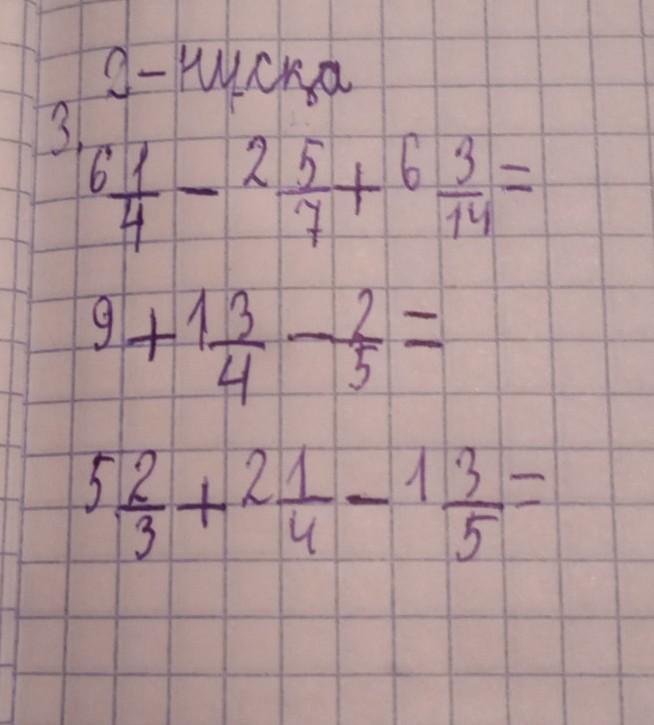 2-нұсқа
3.
6 1/4 - 2 5/7 + 6 3/14 =
9 + 1 3/4 - 2/5 =
5 2/3 + 2 1/4 - 1 3/5 =